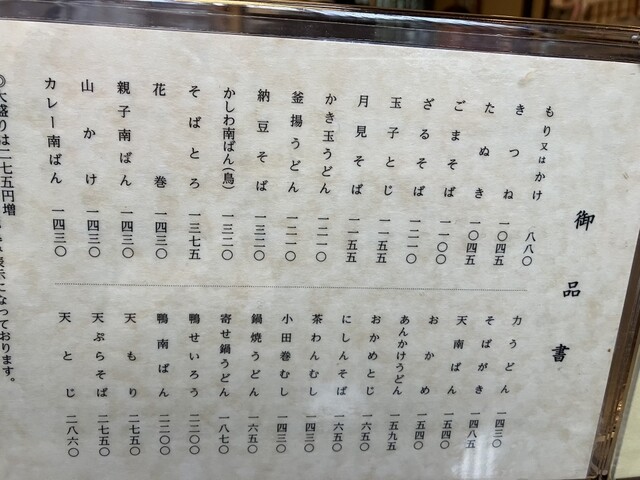 御品書
もり又はかけ 八八〇
きつね 一〇四五
たぬき 一〇四五
ごまそば 一一〇〇
ざるそば 一二一〇
玉子とじ 一一五五
月見そば 一一五五
かき玉うどん 一二一〇
釜揚うどん 一二一〇
納豆そば 一三二〇
かしわ南ばん(鳥) 一三二〇
そばとろ 一三七五
花巻 一四三〇
親子南ばん 一四三〇
山かけ 一四三〇
カレー南ばん 一四三〇
力うどん 一四三〇
そばがき 一四八五
天南ばん 一五四〇
おかめ 一五四〇
あんかけうどん 一五九五
おかめとじ 一六五〇
にしんそば 一六五〇
茶わんむし 一四三〇
小田巻むし 一四三〇
鍋焼うどん 一六五〇
寄せ鍋うどん 一八七〇
鴨せいろう 二二〇〇
鴨南ばん 二二〇〇
天もり 二七五〇
天ぷらそば 二七五〇
天とじ 二八六〇
◎大盛りは二七五円増
表示になっております。